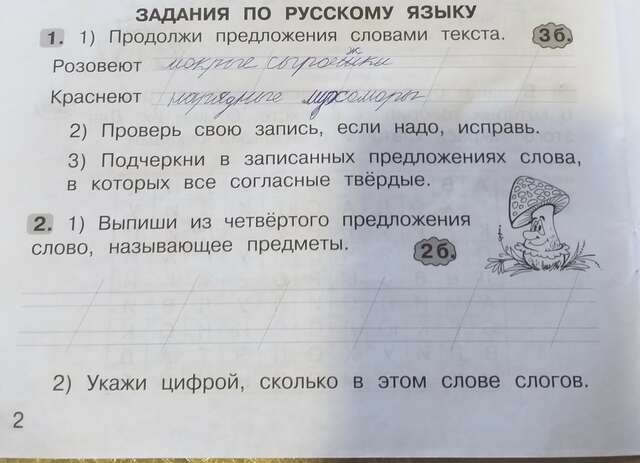 ЗАДАНИЯ ПО РУССКОМУ ЯЗЫКУ
1. 1) Продолжи предложения словами текста. 3б.
Розовеют мокрые сыроежки
Краснеют нарядные мухоморы
2) Проверь свою запись, если надо, исправь.
3) Подчеркни в записанных предложениях слова,
в которых все согласные твёрдые.
2. 1) Выпиши из четвёртого предложения
слово, называющее предметы. 2б.
2) Укажи цифрой, сколько в этом слове слогов.
2